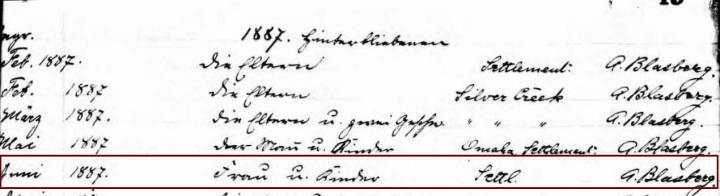 1887. Hinterbliebenen
Feb. 1887. die Eltern Settlement. A. Blasberg.
Feb. 1887 die Eltern Silver Creek A. Blasberg.
März 1887. die Eltern u. zwei Geschw. " " " A. Blasberg.
Mai 1887 der Mann u. Kinder Omaha Settlement. A. Blasberg.
Juni 1887. Frau u. Kinder Settl. A. Blasberg